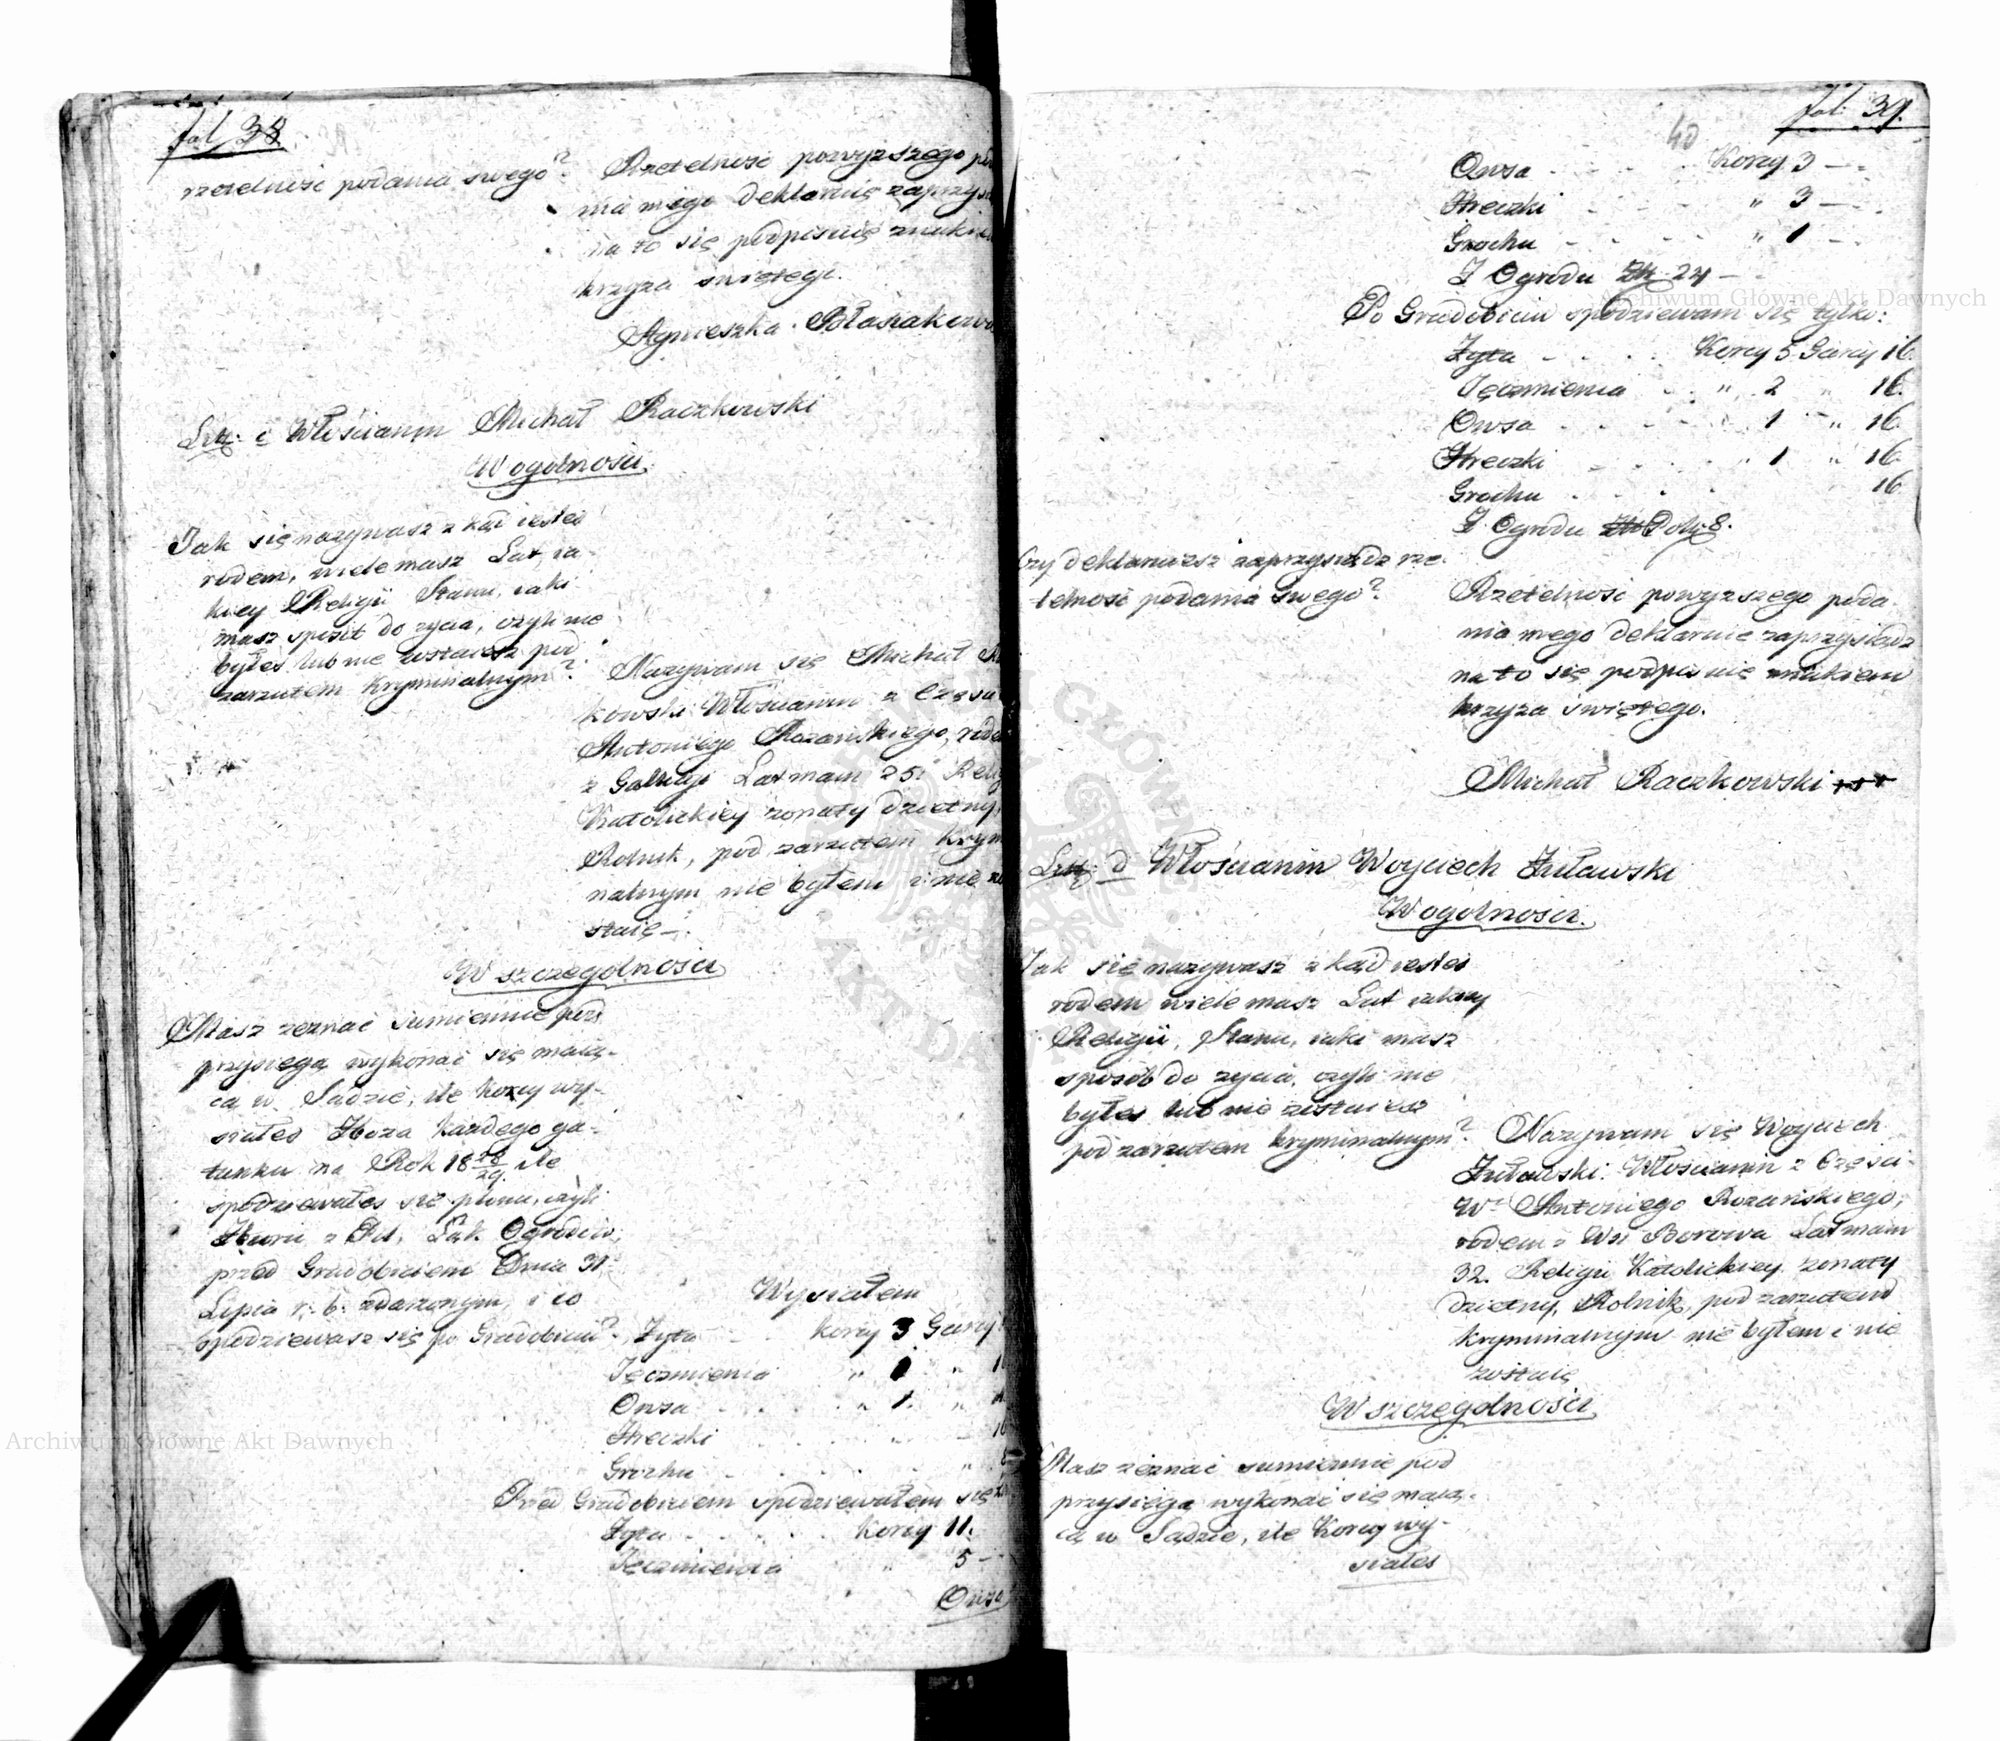 fol 38.
rzetelność podania swego? Rzetelność powyższego po
nia mego deklaruię zaprzys
na to się podpisuię znakiem
krzyża świętego.
Agnieszka Błaszakowa
Litt: c Włościanin Michał Raczkowski
W ogolności
Jak się nazywasz z kąd iesteś
rodem, wiele masz Lat, ia-
kiey Religii Stanu, iaki
masz sposob do zycia, czyli nie
byłeś lub nie zostaiesz pod
zarzutem kryminalnym? Nazywam się Michał Ra
kowski Włościanin z Częsci
Antoniego Rozańskiego, rode
z Galicyi Lat mam 25. Relig
Katolickiey zonaty dzietny,
Rolnik, pod zarzutem krym
nalnym nie byłem i nie zo
staię —.
W szczegolności
Masz zeznać sumiennie pod
przysięgą wykonać się maią-
cą w Sądzie, ile korcy wy-
siałeś Zboza kazdego ga-
tunku na Rok 18 28/29. ile
spodziewałeś się plonu, czyli
Zbioru z Pol, Łąk Ogrodów,
przed Gradobiciem Dnia 31
Lipca r: b: zdarzonym, i co
spodziewasz się po Gradobiciu? Wysiałem
Zyta - - korcy 3 Garcy
Jęczmienia " 1 "
Owsa - - " 1 "
Hreczki
Grochu
Przed Gradobiciem spodziewałem się
Zyta - - - Korcy 11.
Jęczmienia " 5 —
Owsa
fol: 39.
40
Owsa - - - Korcy 3 —
Hreczki - - - " 3 —
Grochu - - - " 1 —
Z Ogrodu Zł: 24 —
Po Gradobiciu spodziewam się tylko:
Zyta - - - Korcy 5 Garcy 16.
Jęczmienia - - " 2 " 16.
Owsa - - - 1 " 16.
Hreczki - - - " 1 " 16.
Grochu - - - 16
Z Ogrodu Zł Pols: 8.
Czy deklaruiesz zaprzysiądz rze-
telność podania swego? Rzetelność powyzszego poda-
nia mego deklaruie zaprzysiądz
na to się podpisuię znakiem
krzyza świętego.
Michał Raczkowski +++
Litt: d Włościanin Woyciech Żuławski
W ogolności.
Jak się nazywasz z kąd iesteś
rodem wiele masz Lat iakiey
Religii, Stanu, iaki masz
sposób do zycia, czyli nie
byłeś lub nie zostaiesz
pod zarzutem kryminalnym? Nazywam się Woyciech
Żuławski: Włościanin z Częsci
Wo Antoniego Rozańskiego,
rodem z Wsi Borowa Lat mam
32. Religii Katolickiey zonaty
dzietny, Rolnik, pod zarzutem
kryminalnym nie byłem i nie
zostaię
W szczegolności
Masz zeznać sumiennie pod
przysięgą wykonać się maią-
cą w Sądzie, ile Korcy wy-
siałeś
Archiwum Główne Akt Dawnych
Archiwum Główne Akt Dawnych